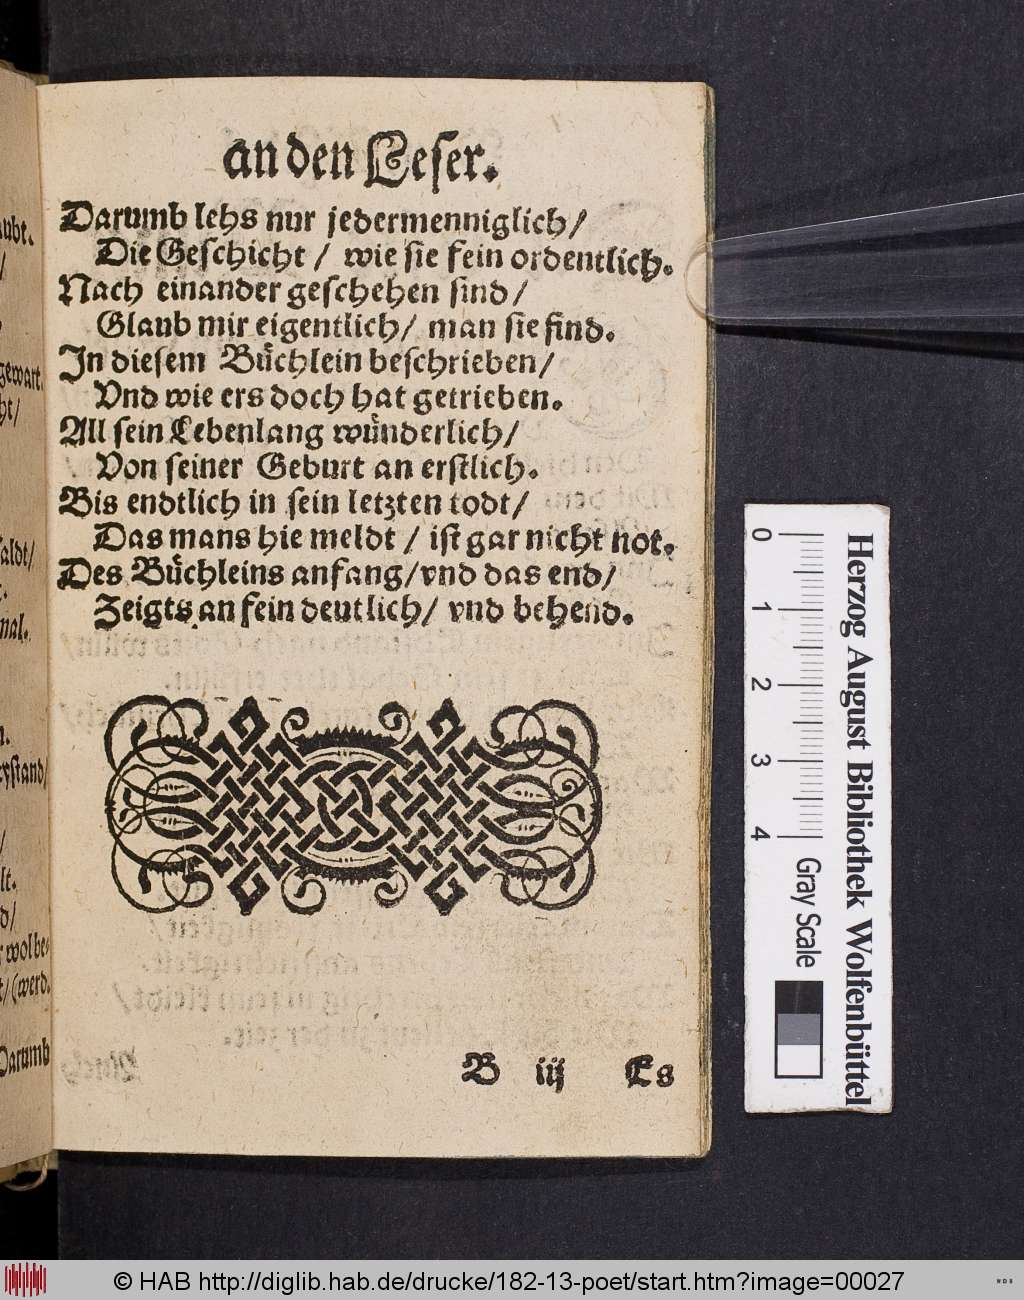 an den Leser.
Darumb lehs nur jedermenniglich/
Die Geschicht / wie sie fein ordentlich.
Nach einander geschehen sind/
Glaub mir eigentlich/ man sie find.
In diesem Buͤchlein beschrieben/
Vnd wie ers doch hat getrieben.
All sein Lebenlang wuͤnderlich/
Von seiner Geburt an erstlich.
Bis endtlich in sein letzten todt/
Das mans hie meldt / ist gar nicht not.
Des Buͤchleins anfang/vnd das end/
Zeigts an fein deutlich/ vnd behend.
B iij Es
gewart.
nal.
wolbe-
t/(werd.
Darumb
0 1 2 3 4
Gray Scale
Herzog August Bibliothek Wolfenbüttel
© HAB http://diglib.hab.de/drucke/182-13-poet/start.htm?image=00027
WDB